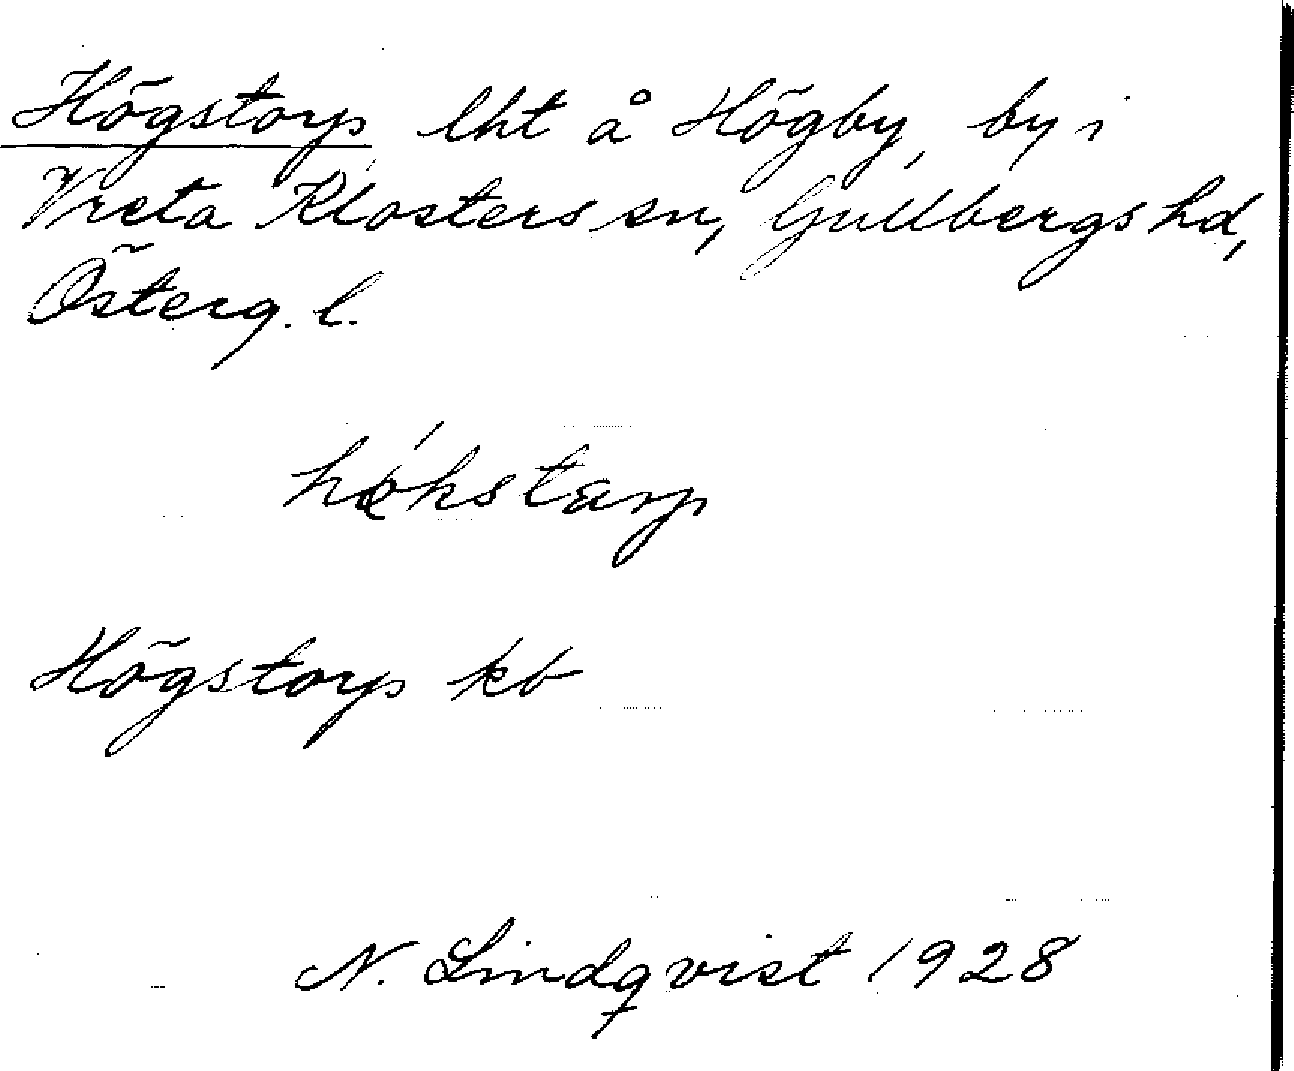 Högstorp, lht å Högby, by i
Vreta Klosters sn, Gullbergs hd,
Österg. l.
Högstorp kb
N. Lindqvist 1928